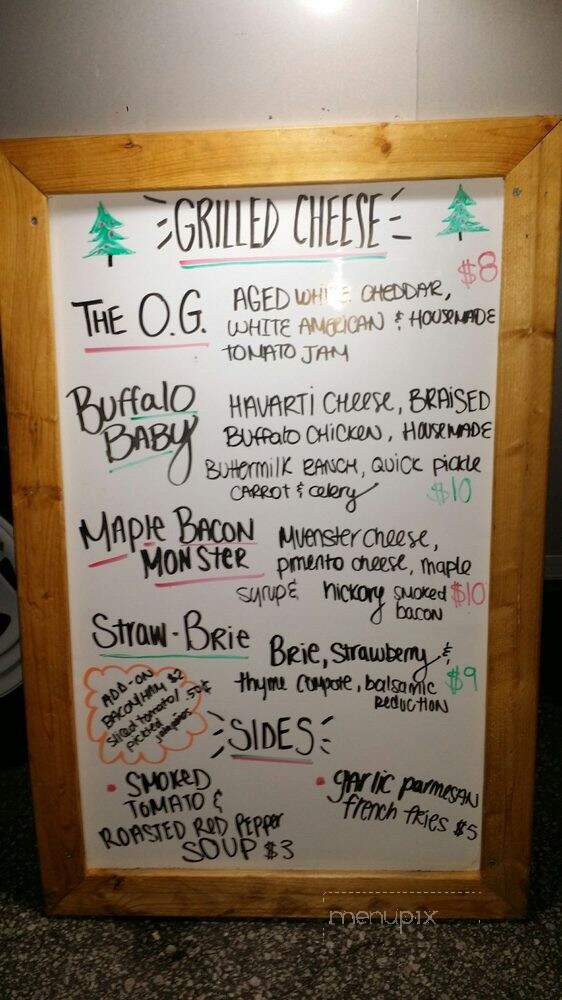 GRILLED CHEESE
$8
THE O.G. AGED WHITE CHEDDAR,
WHITE AMERICAN & HOUSEMADE
TOMATO JAM
Buffalo BABY HAVARTI CHEESE, BRAISED
Buffalo CHICKEN, HOUSEMADE
Buttermilk RANCH, QUICK pickle
CARROT & celery $10
MAPLE BACON MONSTER Muenster cheese,
pimento cheese, maple
syrup & hickory smoked $10
bacon
Straw-Brie Brie, Strawberry &
thyme compote, balsamic $9
REDUCTION
ADD-ON
BACON/HAM $2
sliced tomato/ 50¢
pickled
jalapeños
SIDES
• SMOKED
TOMATO &
ROASTED RED PEPPER
SOUP $3
• garlic parmesan
french fries $5
menupix